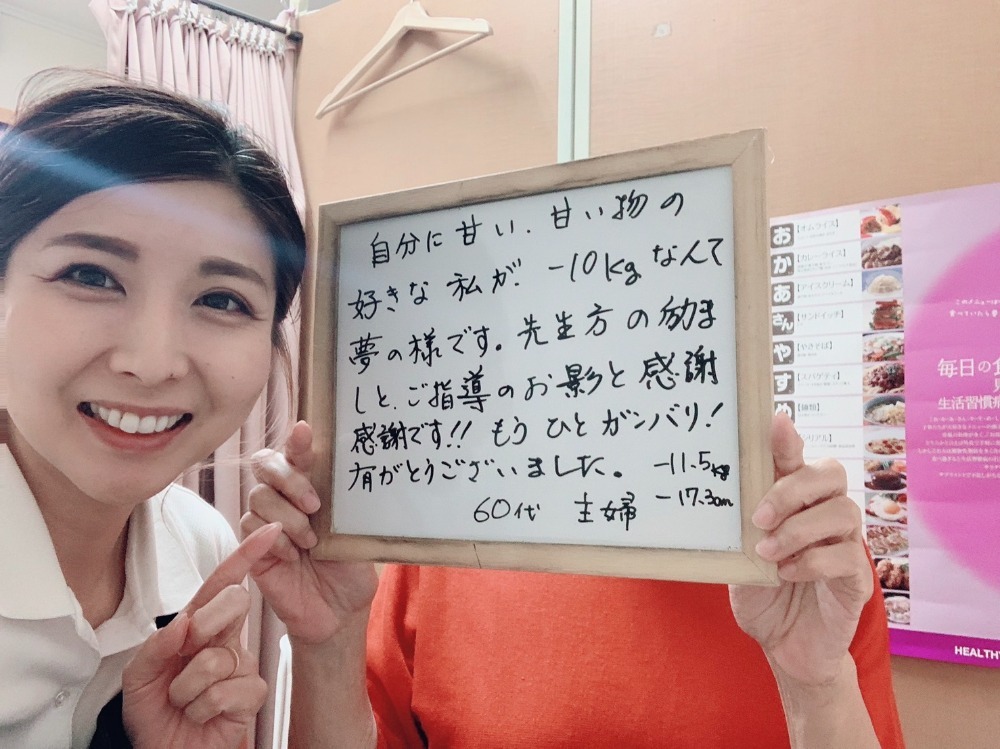 自分に甘い、甘い物の
好きな私が -10kgなんて
夢の様です。先生方の励ま
しと、ご指導のお影と感謝
感謝です!! もうひとガンバリ!
有がとうございました。 -11.5kg
-17.3cm
60代 主婦
お【オムライス】
か【カレーライス】
あ【アイスクリーム】
さん【サンドイッチ】
や【やきそば】
す【スパゲティ】
め【麺類】
毎日の食
生活習慣病
HEALTHY